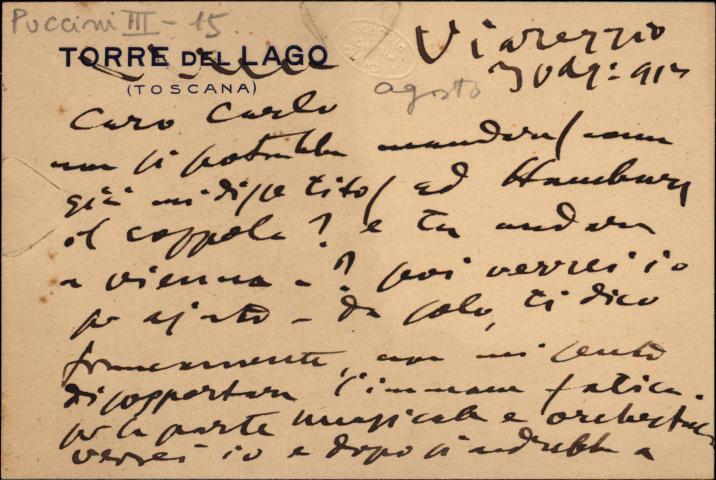 Puccini III - 15
TORRE DEL LAGO
(TOSCANA)
Viareggio
30 ag: 912
agosto
Caro Carlo
non si potrebbe mandare (come
già mi dise Tito) ad Hamburg
il Coppola? e tu andare
a Vienna -? poi verrei io
per ajuto - da solo, ti dico
francamente, non mi sento
di sopportare l'immane fatica.
per la parte musicale e orchestrale
verrei io e dopo si andrebbe a